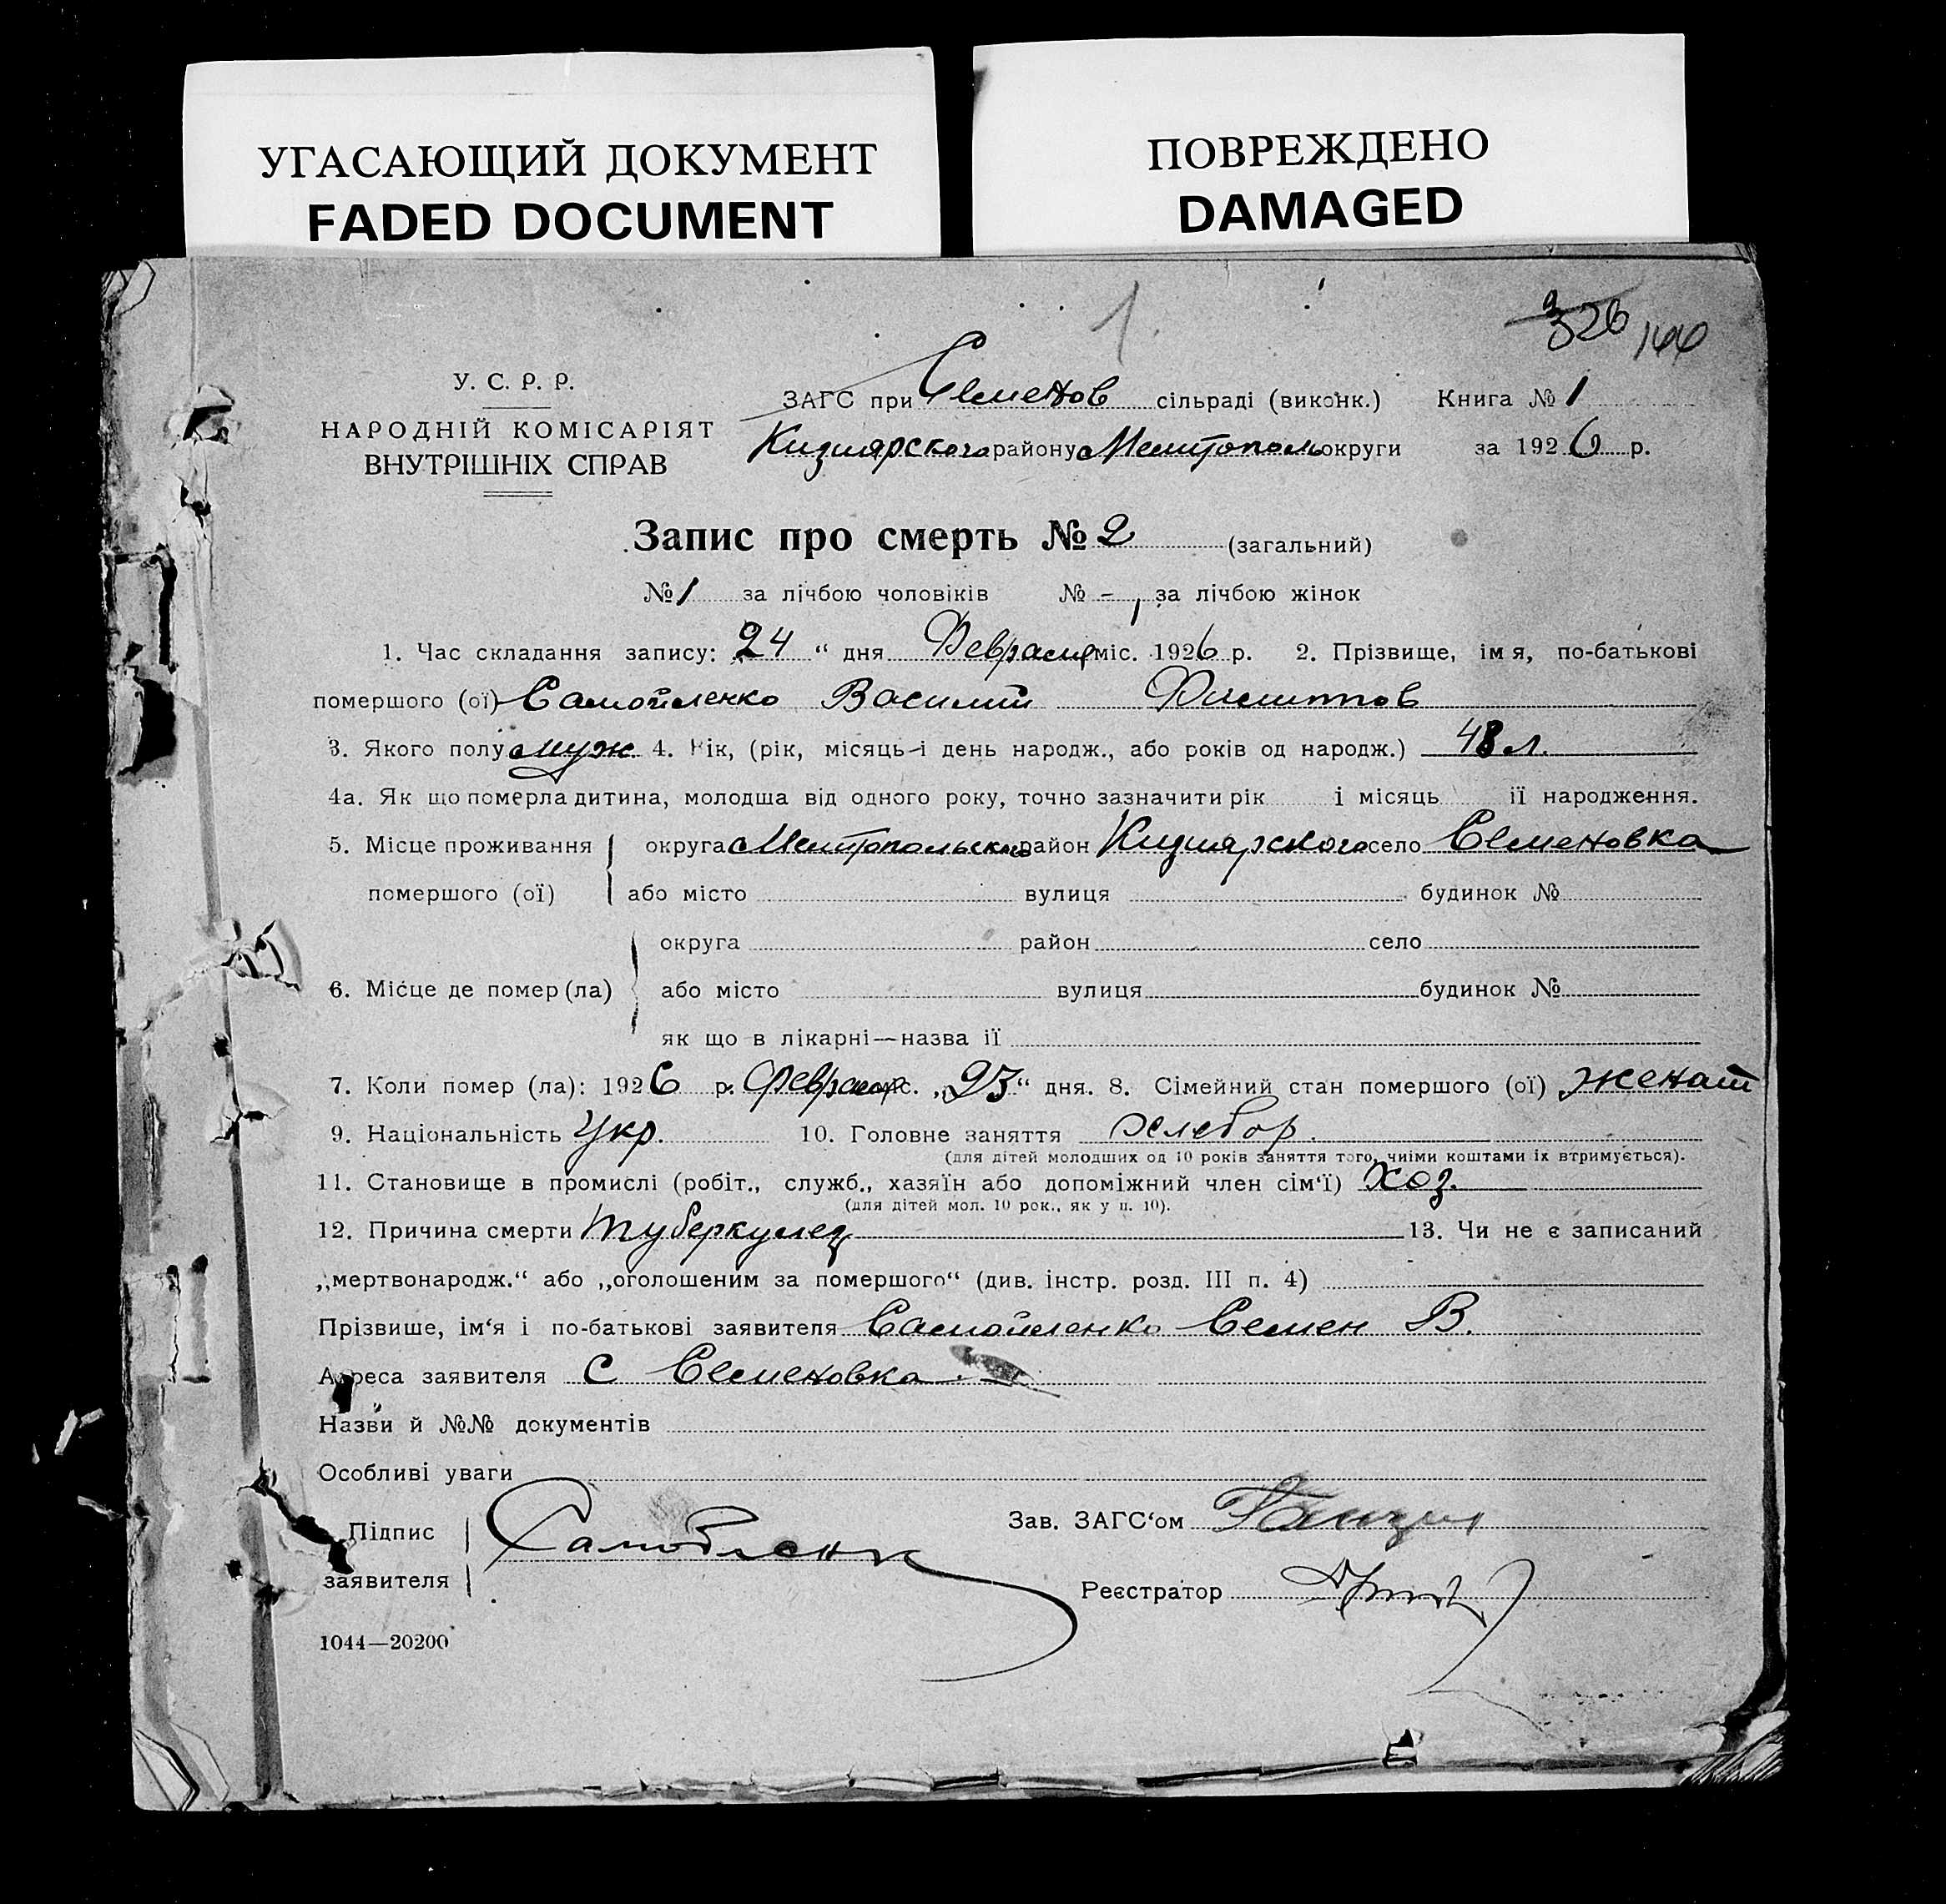 УГАСАЮЩИЙ ДОКУМЕНТ
FADED DOCUMENT
ПОВРЕЖДЕНО
DAMAGED
1.
326 144
У. С. Р. Р.
НАРОДНІЙ КОМІСАРІЯТ
ВНУТРІШНІХ СПРАВ
ЗАГС при Семенов сільраді (виконк.) Книга № 1
Кизиярского району Мелитополь округи за 1926 р.
Запис про смерть № 2 (загальний)
№ 1 за лічбою чоловіків № - за лічбою жінок
1. Час складання запису: 24 “ дня Февраля міс. 1926 р. 2. Прізвище, імя, по-батькові
помершого (ої) Самойленко Василий Филиппов
3. Якого полу муж 4. Вік, (рік, місяць і день народж., або років од народж.) 48 л.
4а. Як що померла дитина, молодша від одного року, точно зазначити рік і місяць її народження.
5. Місце проживання округа Мелитопольского район Кизиярского село Семеновка
помершого (ої) або місто вулиця будинок №
округа район село
6. Місце де помер (ла) або місто вулиця будинок №
як що в лікарні—назва її
7. Коли помер (ла): 1926 р. Февраля міс. „23“ дня. 8. Сімейний стан помершого (ої) женат
9. Національність Укр. 10. Головне заняття хлебор.
(для дітей молодших од 10 років заняття того, чиїми коштами їх втримується).
11. Становище в промислі (робіт., служб., хазяїн або допоміжний член сім‘ї) хоз.
(для дітей мол. 10 рок., як у п. 10).
12. Причина смерти туберкулез 13. Чи не є записаний
„мертвонародж.“ або „оголошеним за помершого“ (див. інстр. розд. III п. 4)
Прізвише, ім‘я і по-батькові заявителя Самойленко Семен В.
Адреса заявителя С Семеновка
Назви й №№ документів
Особливі уваги
Підпис
заявителя
Самойленк
Зав. ЗАГС‘ом
Реєстратор
1044—20200